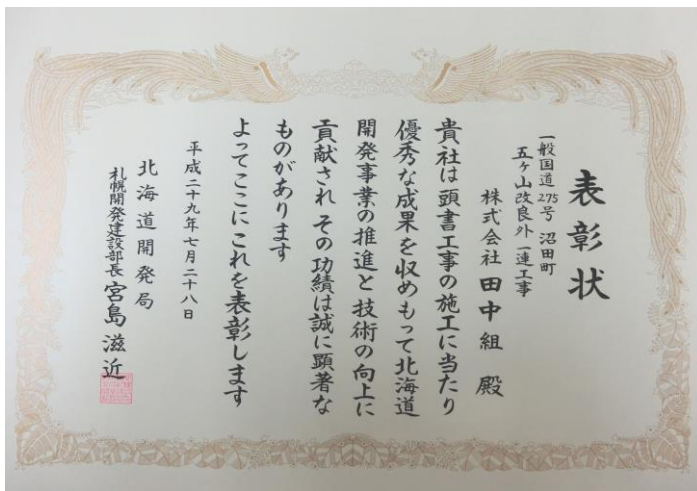 表彰状
一般国道275号 沼田町
五ケ山改良外一連工事
株式会社 田中組 殿
貴社は頭書工事の施工に当たり
優秀な成果を収めもって北海道
開発事業の推進と技術の向上に
貢献され その功績は誠に顕著な
ものがあります
よってここにこれを表彰します
平成二十九年七月二十八日
北海道開発局
札幌開発建設部長 宮島滋近